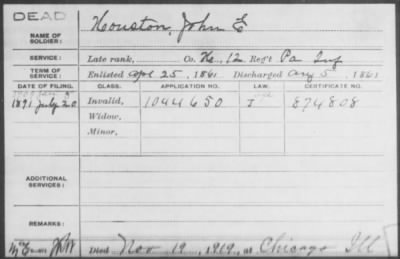 DEAD
NAME OF SOLDIER: Houston, John E
SERVICE: Late rank, Co. K, 12 Reg't Pa Inf
TERM OF SERVICE: Enlisted Apl 25, 1861 Discharged Aug 5, 1861
DATE OF FILING. CLASS. APPLICATION NO. LAW. CERTIFICATE NO.
1891 July 20 Invalid, 1044650 J 874808
Widow,
Minor,
ADDITIONAL SERVICES:
REMARKS:
Died Nov 19, 1919, at Chicago Ill